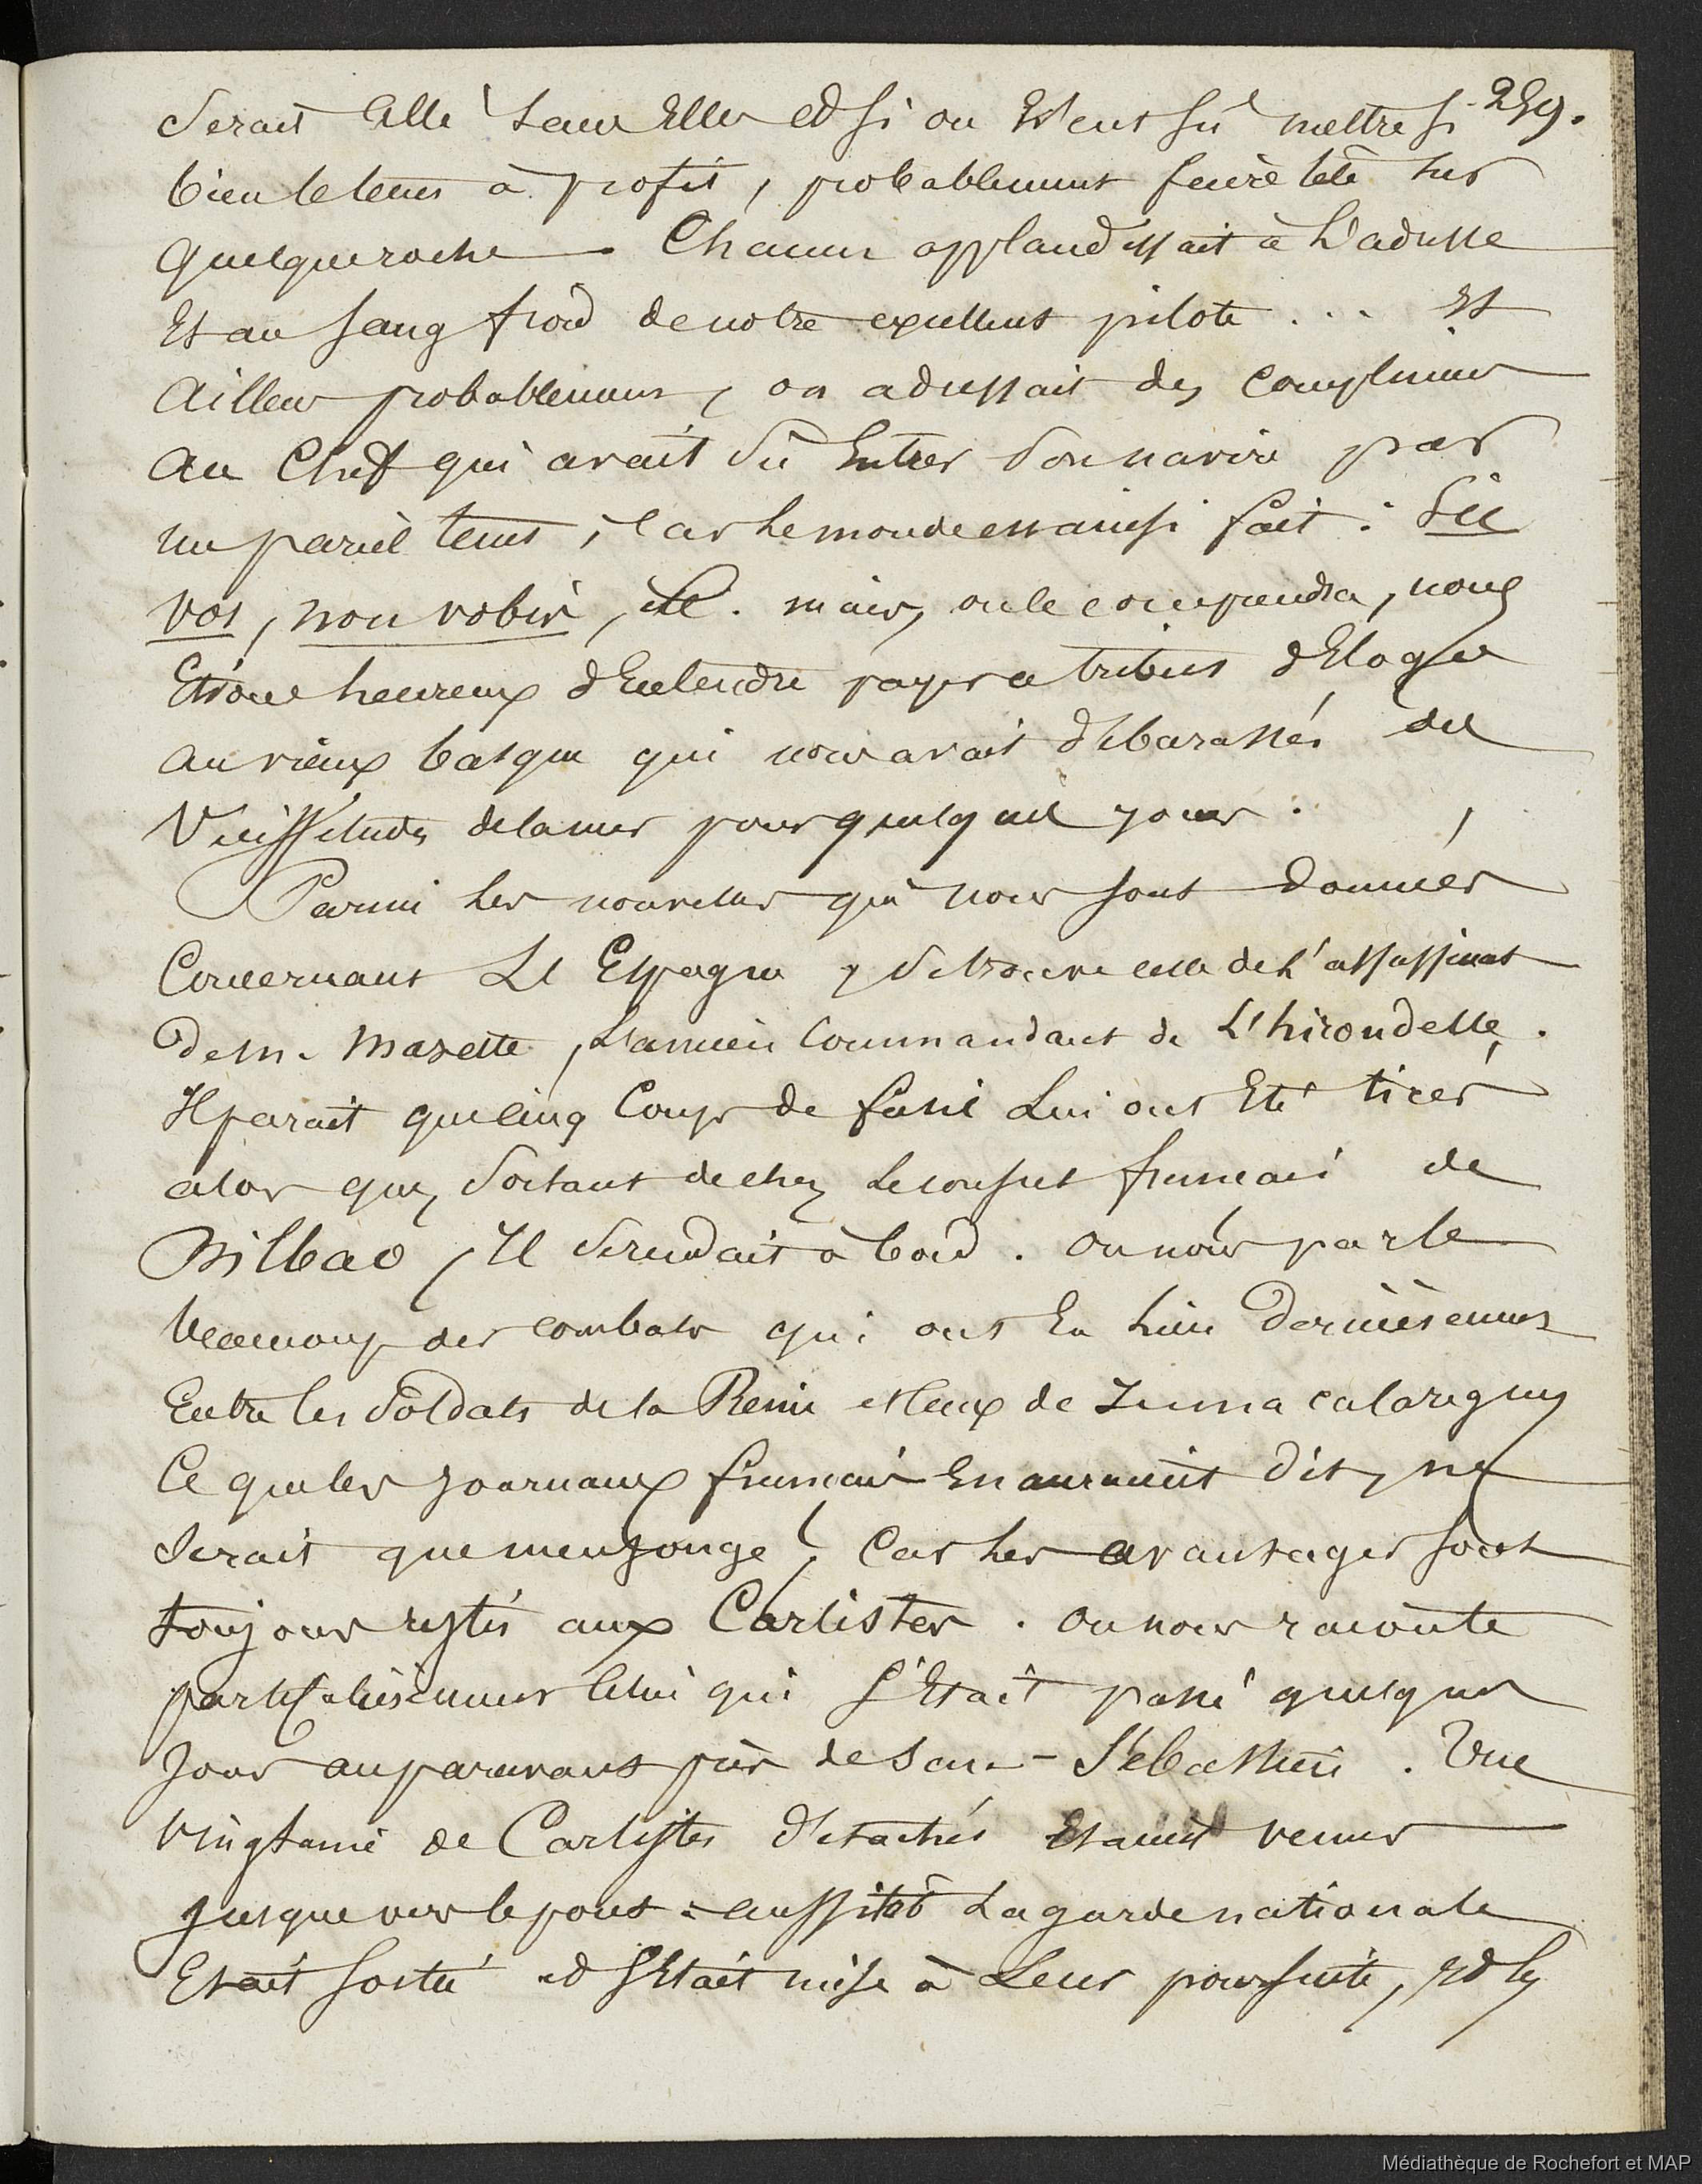 259.
serait allé sans elles et si on n'eut su mettre si
bien le tems à profit, probablement faire tête sur
quelque roche — Chacun applaudissait à L'adresse
Et au sang froid de notre excellent pilote ... Et
ailleurs probablement, on adressait des complimens
au Chef qui avait su Entrer son navire par
un pareil tems, car le monde est ainsi fait : Sic
vos, non vobis, etc. mais, on le comprendra, nous
Etions heureux d'Entendre payer ce tribut d'Eloges
au vieux basque qui nous avait débarassés des
Vicissitudes de la mer pour quelques jours.
Parmi les nouvelles qui nous sont données
Concernant L'Espagne, se trouve celle de L'assassinat
de M. Mazette, L'ancien Commandant de L'hirondelle.
Il parait que cinq Coups de fusil Lui ont Eté tirés
alors que, sortant de chez Le consul français de
Bilbao, Il se rendait à bord. On nous parle
beaucoup des combats qui ont Eu lieu dernièrement
Entre les Soldats de la Reine et Ceux de Zumacalareguy
Ce que les journaux français En auraient dit, ne
serait que mensonge! Car les avantages sont
toujours restés aux Carlistes. On nous raconte
particulièrement Celui qui s'Etait passé quelques
jours auparavant près de San-Sébastien. Une
vingtaine de Carlistes détachés Etaient venus
jusque vers le pont : aussitôt La garde nationale
Etait sortie et s'Etait mise à Leur poursuite, et les
Médiathèque de Rochefort et MAP